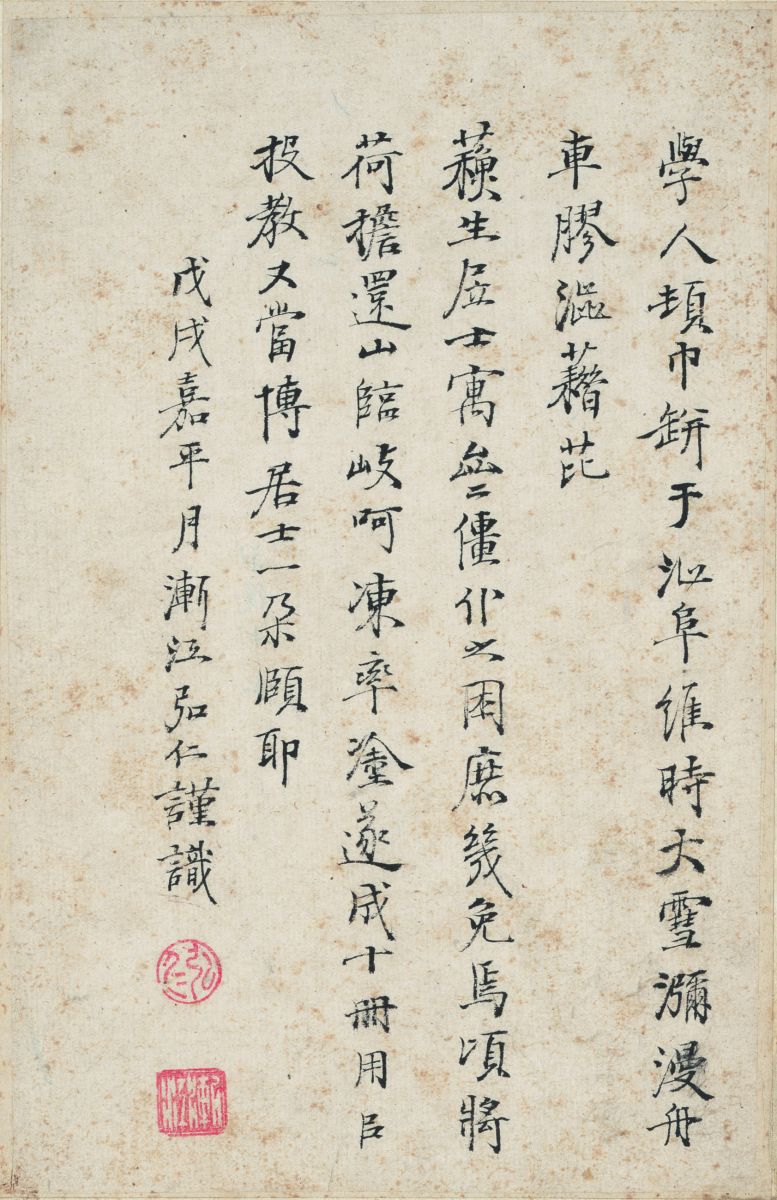 學人頓巾缾于沁阜維時大雪瀰漫舟
車膠澁藉芘
蘋生居士寓無二僵仆之困庶幾免焉頃將
荷擔還山臨岐呵凍率塗遂成十冊用㠯
投教又當博居士一朶頤耶
戊戌嘉平月漸江弘仁謹識
弘仁
漸江